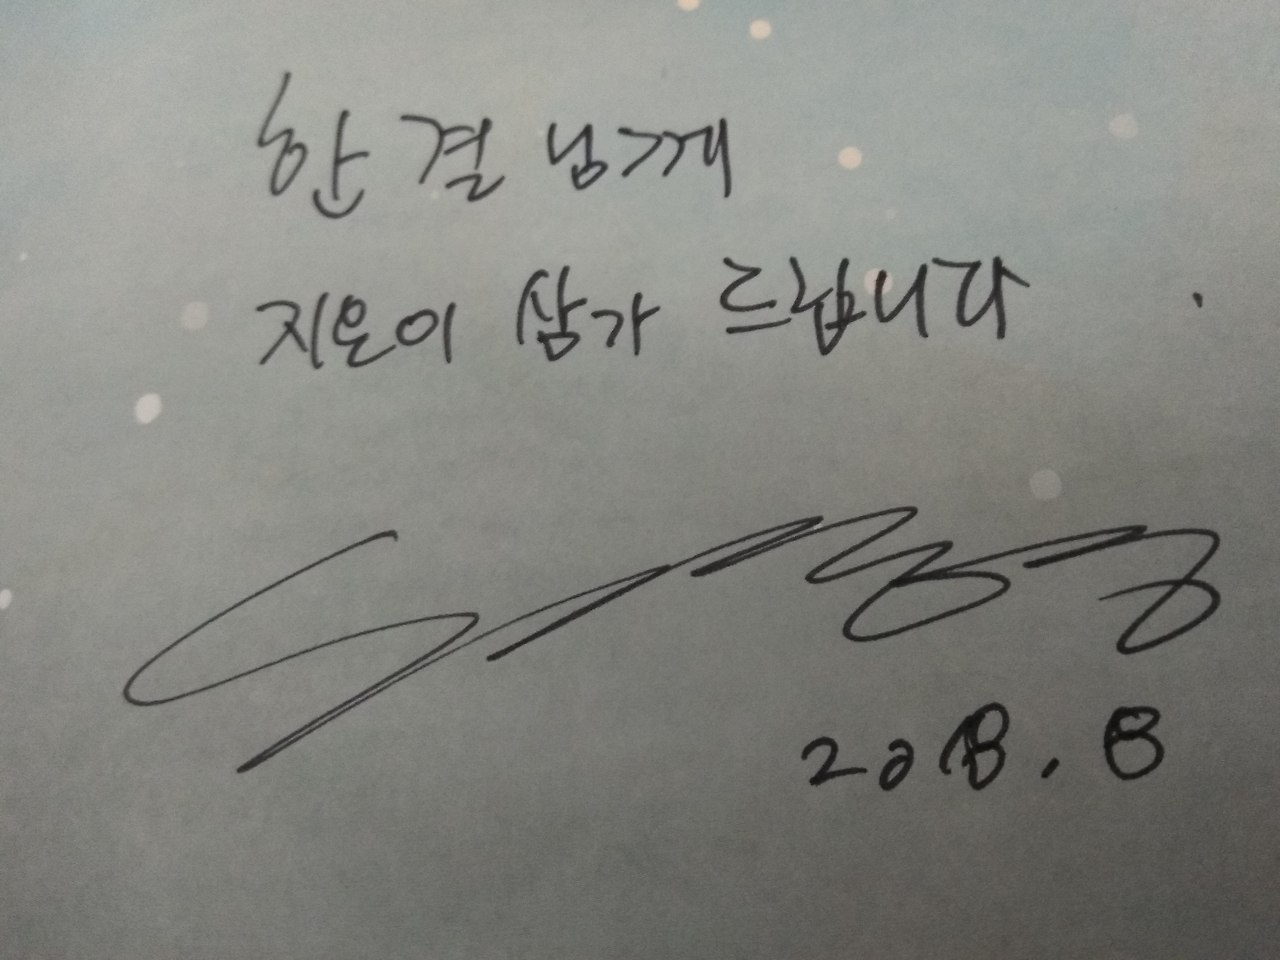 한결 님께
지은이 삼가 드립니다.
2018. 8